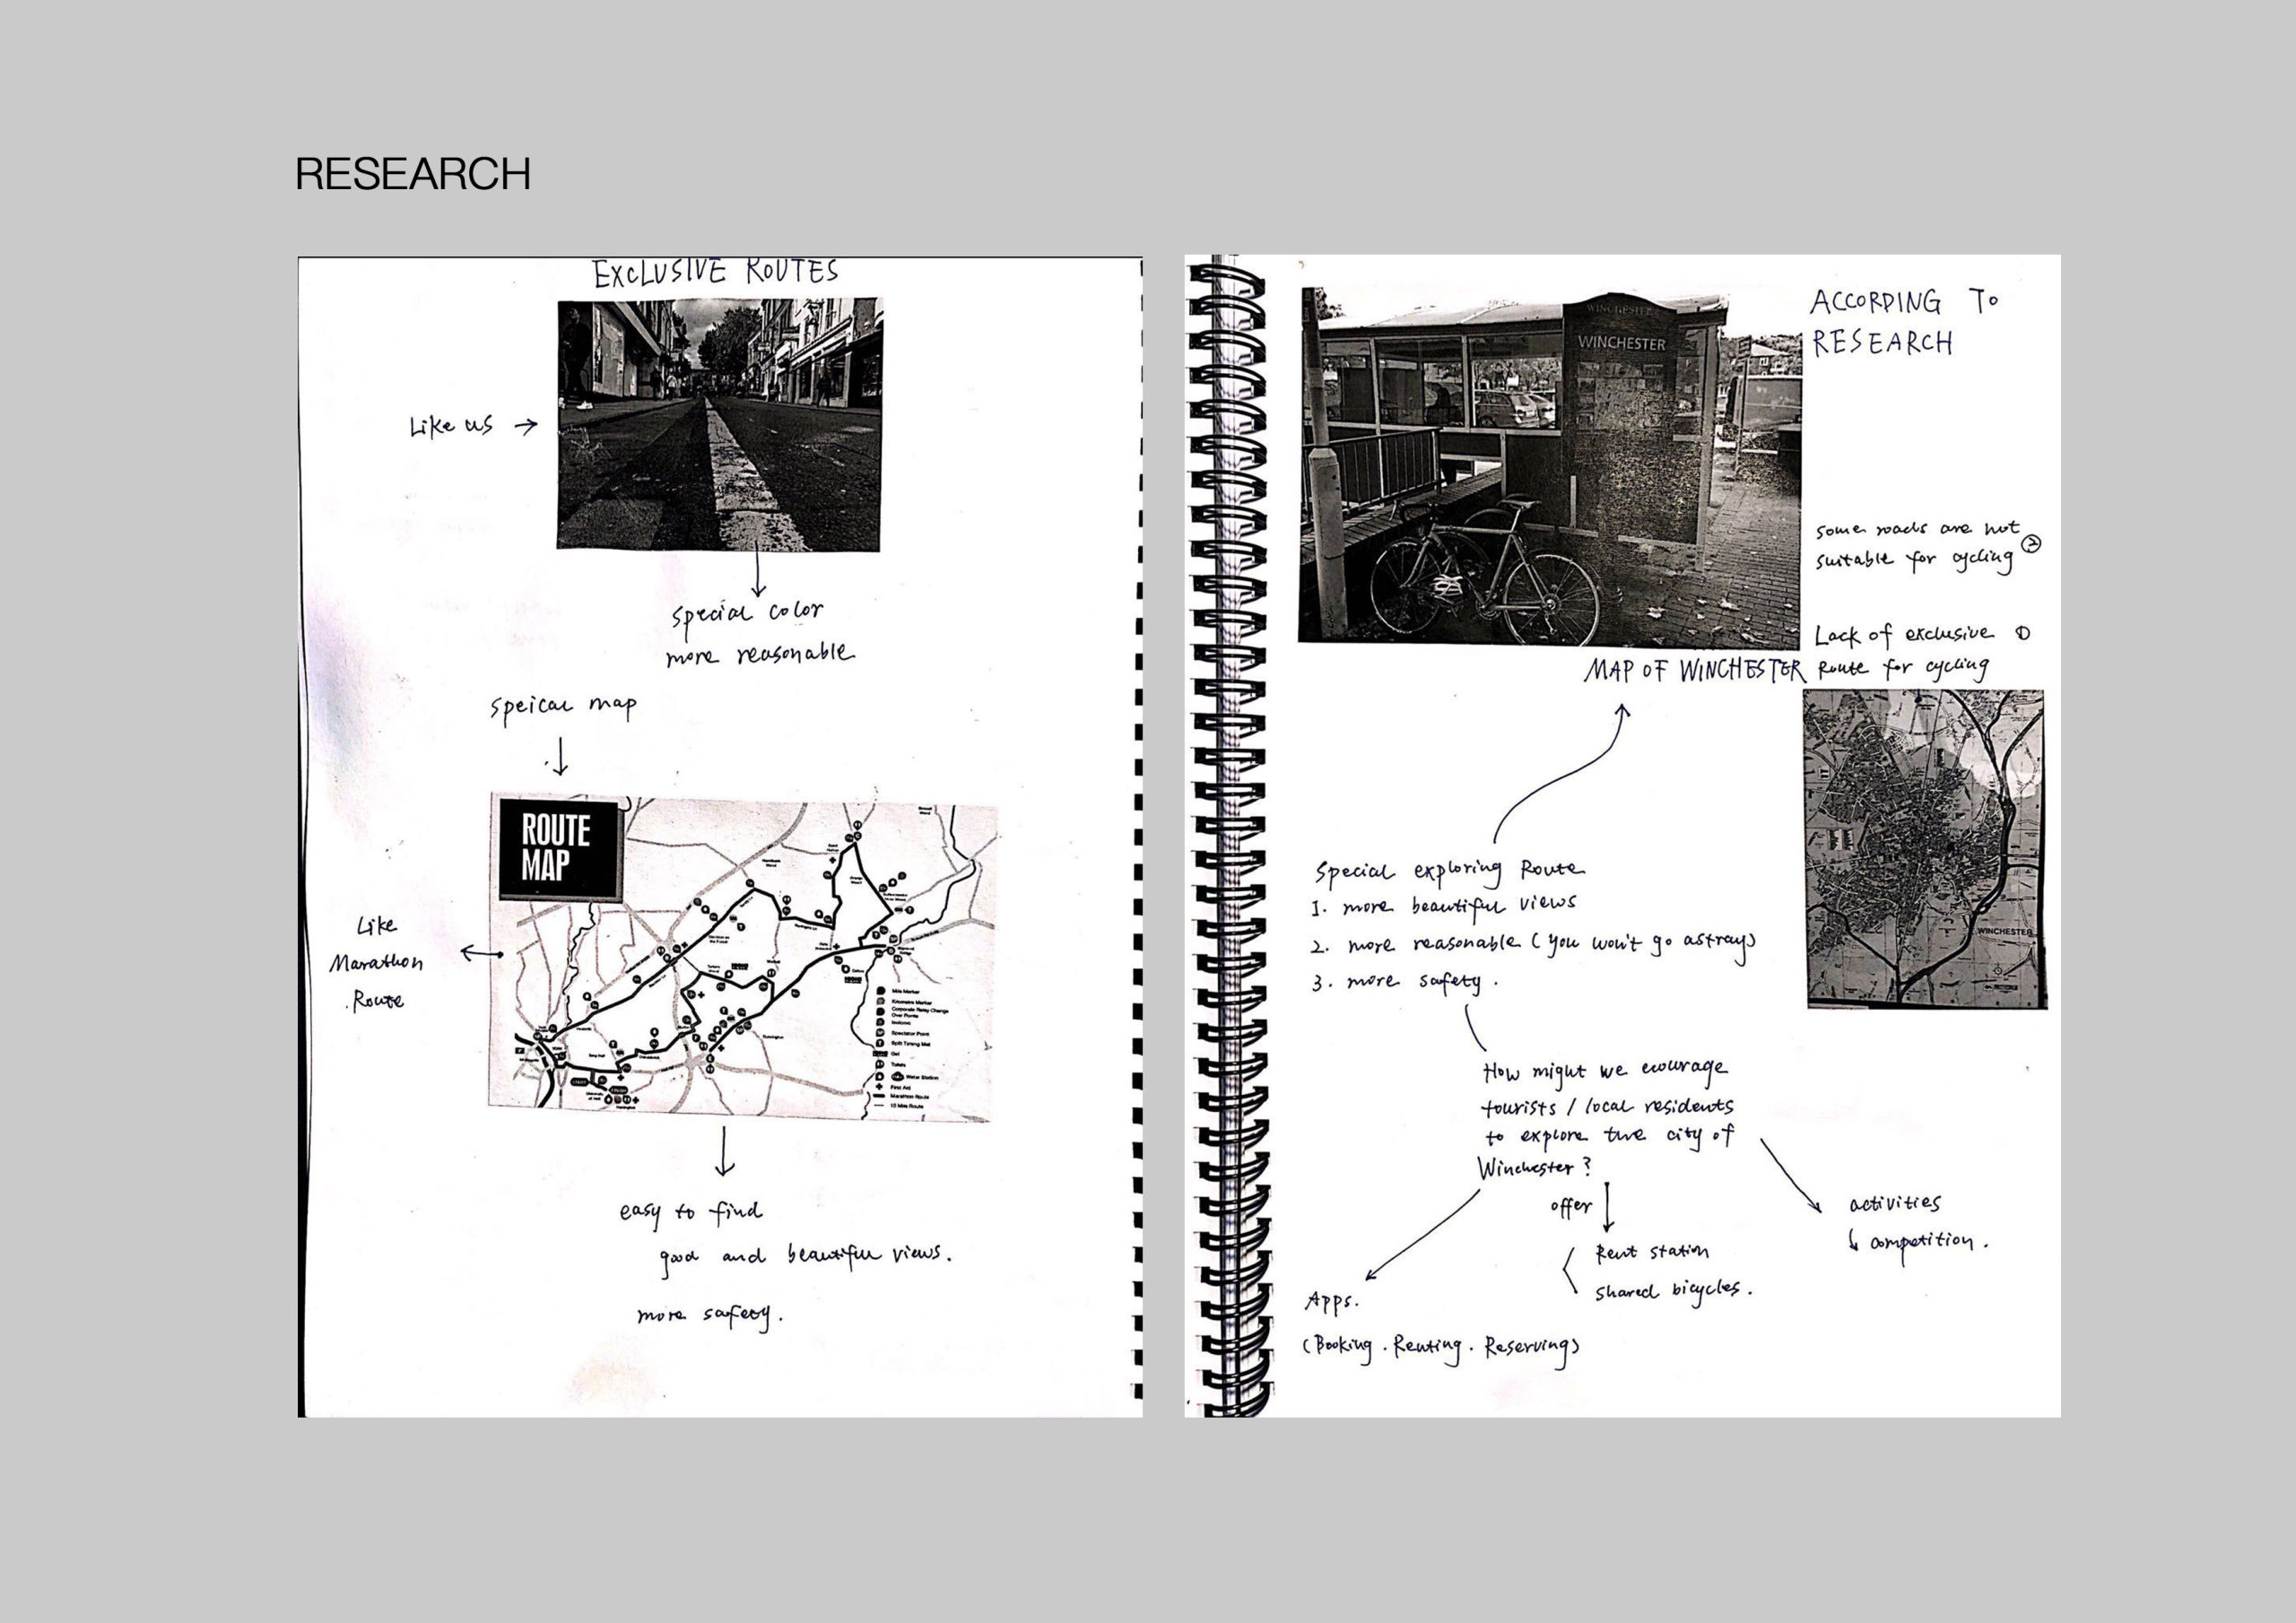 RESEARCH
EXCLUSIVE ROUTES
Like us →
special color
more reasonable
speical map
ROUTE
MAP
Mile Marker
Kilometre Marker
Corporate Relay Change
Over Points
Spectator Point
Split Timing Mat
Gel
Toilets
Water Station
First Aid
Marathon Route
10 Mile Route
Like
Marathon
Route
easy to find
good and beautiful views.
more safety.
WINCHESTER
WINCHESTER
ACCORDING TO
RESEARCH
some roads are not
suitable for cycling ②
Lack of exclusive ①
Route for cycling
MAP OF WINCHESTER
WINCHESTER
Special exploring Route
1. more beautiful views
2. more reasonable (you won't go astray)
3. more safety.
How might we ecourage
tourists / local residents
to explore the city of
Winchester?
offer
Rent station
shared bicycles.
activities
↳ competition.
Apps.
(Booking . Renting . Reserving)